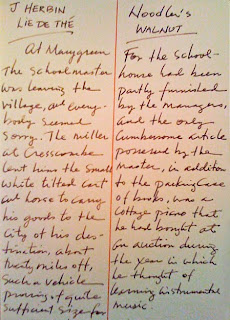 J HERBIN
LIE DE THÉ
At Marygreen
The schoolmaster
was leaving the
village, and every-
body seemed
sorry. The miller
at Cresscombe
lent him the small
white tilted cart
and horse to carry
his goods to the
city of his des-
tination, about
twenty miles off,
such a vehicle
proving of quite
sufficient size for
Noodler's
WALNUT
For the school-
house had been
partly furnished
by the managers,
and the only
cumbersome article
possessed by the
master, in addition
to the packing case
of books, was a
cottage piano that
he had bought at
an auction during
the year in which
he thought of
learning instrumental
music